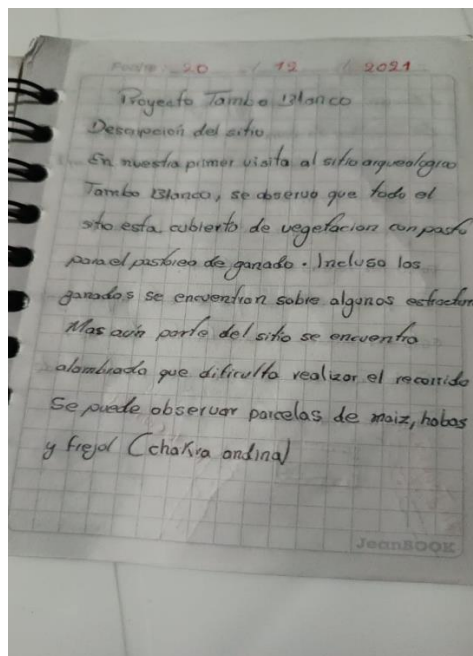 Fecha: 20 / 12 / 2021
Proyecto Tambo Blanco
Descripción del sitio
En nuestra primer visita al sitio arqueologico
Tambo Blanco, se observo que todo el
sitio esta cubierto de vegetacion con pasto
para el pastoreo de ganado. Incluso los
ganados se encuentran sobre algunos
Mas aún parte del sitio se encuentra
alambrada que dificulta realizar el recorrido
Se puede observar parcelas de maiz, habas
y frejol (chakra andina)
JeanBOOK